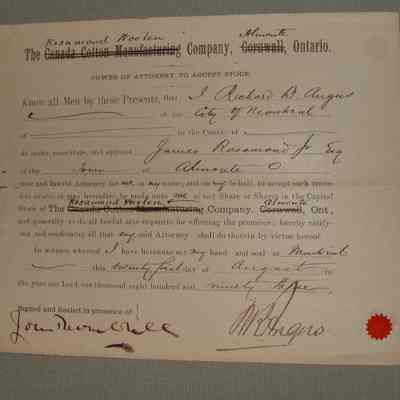 Rosamond Woolen Almonte
The Canada Cotton Manufacturing Company, Cornwall, Ontario.
POWER OF ATTORNEY TO ACCEPT STOCK.
Know all Men by these Presents, that I Richard B. Angus
of the City of Montreal
of in the County of
do make, constitute, and appoint James Rosamond Jr Esq
of the Town of Almonte O
true and lawful Attorney for me, in my name, and on my behalf, to accept such
made unto me of any Share or Shares in the Capital
Rosamond Woolen Almonte
Stock of The Canada Cotton Manufacturing Company, Cornwall, Ont.,
and generally to do all lawful acts requisite for effecting the premises; hereby ratify-
ing and confirming all that my said Attorney shall do therein by virtue hereof.
In witness whereof I have hereunto set my hand and seal at Montreal
this twenty first day of August in
the year our Lord one thousand eight hundred and ninety three,
Signed and Sealed in presence of
R B Angus